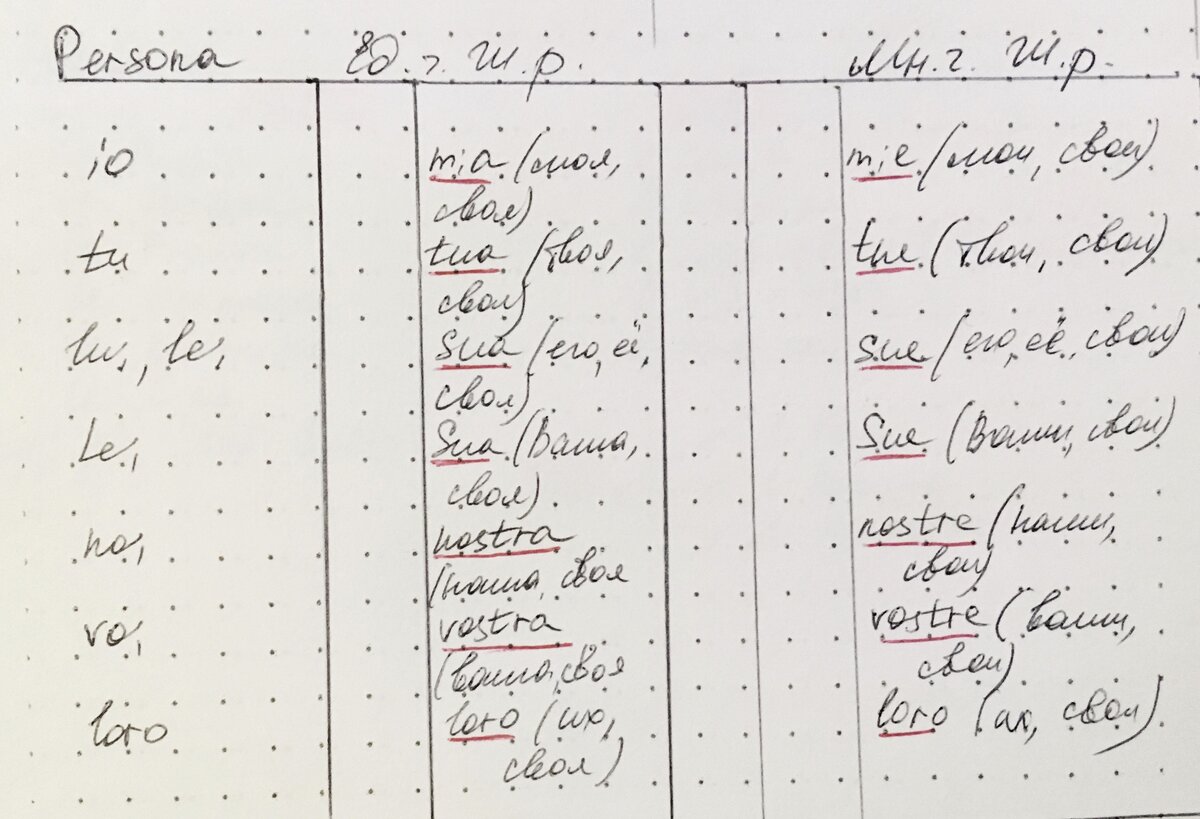 Persona Ед.ч. Ж.р. Мн.ч. Ж.р.
io mia (моя, mie (мои, свои)
своя)
tu tua (твоя, tue (твои, свои)
своя)
lui, lei sua (его, её, sue (его, её, свои)
своя)
Lei Sua (Ваша, Sue (Ваши, свои)
своя)
noi nostra nostre (наши,
(наша, своя свои)
voi vostra vostre (ваши,
(ваша, своя свои)
loro loro (их, loro (их, свои).
своя)